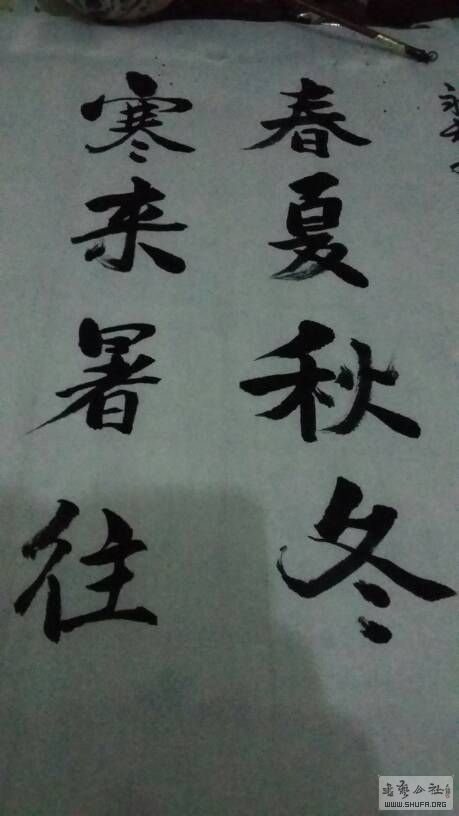 春夏秋冬
寒来暑往
书艺公社
WWW.SHUFA.ORG